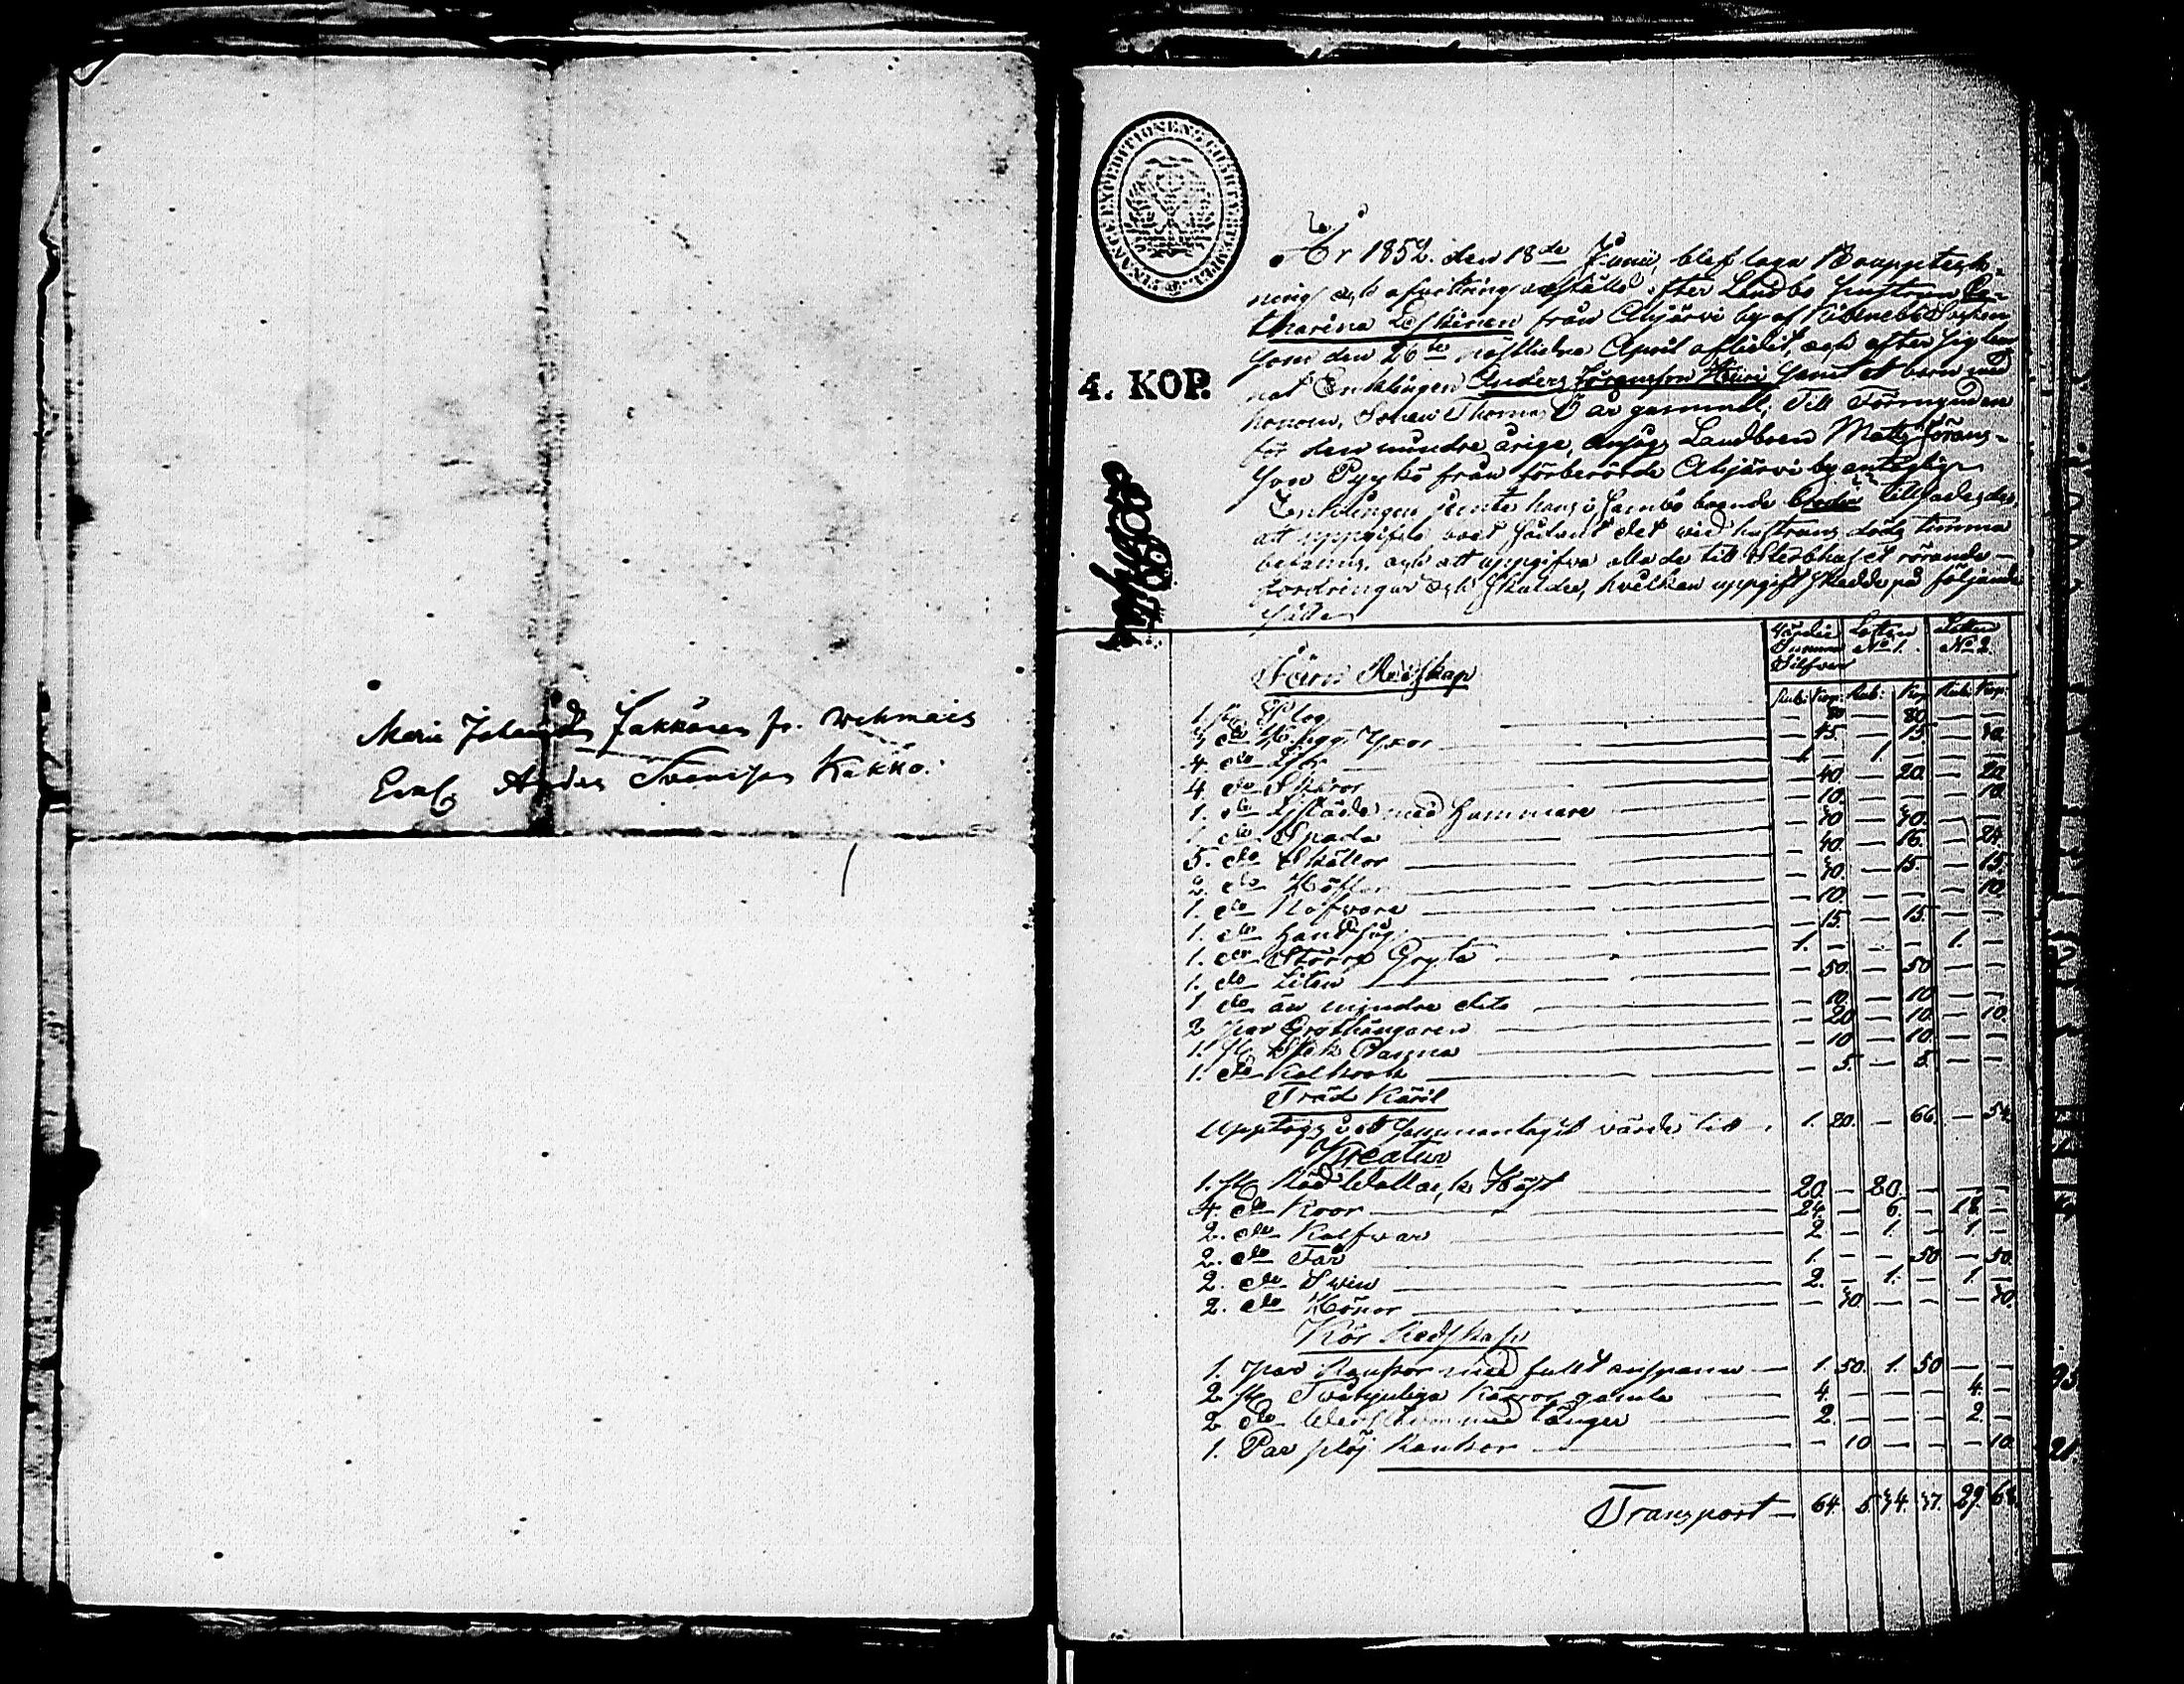 Maria Johansd Jakkäsen fr. Wehmais
Enl Anders Svensson Kakko.
4. KOP.
År 1852. den 18de Junii, blef laga Bouppteck-
ning och afvittring anställd efter Landbo hustrun Ca-
tharina Leskinen från Ahjärvi by af Kivinebb Sochen
som den 26te nästlidne April aflidit, och efter sig lem-
nat Enklingen Anders Göransson Kauri samt et barn med
honom, Sonen Thomas 8 år gammal; till Förmyndare
för den mindre årige, ansågs Landboen Matts Görans-
son Pyykö från förberörde Ahjärvi by antagligen
Enklingen jemte hans i Sambo boende tillsades, den
att uppgifva boet sådant det vid hustruns döds timma
befanns, och att uppgifva alla de till Sterbhuset rörande
fordringar och skulder, hvilken uppgift skedde på följande
sätt
Värdie Summa Silfver Lotten No 1. Lotten No 2
Rub: Kop: Rub: Kop Rub: Kop:
Järn Redskap
1. st Plog — 80 — 80 — —
3 do Hugg Yxor — 45. — 15. — 30
4. do 1. 1. — —
4. do Skäror — 40. — 20. — 20
1. do Städ med Hammare — 10. — — — 10.
1. do Spada — 30 — 30. — —
5. do Skällor — 40. — 16. — 24.
2. do — 30. — 15. — 15.
1. do Nafvare — 10. — — — 10
1. do handsåg — 15 — 15. — —
1. do Större Gryta 1. — — — 1. —
1. do Liten — 50. — 50 — —
1 do än mindre dito — 10 — 10 — —
2 par Grythängaren — 20 — 10. — 10.
1. st Stek Panna — 10 — 10. — —
1. do Kolkrok — 5. — 5. — —
Träd Käril
Upptogs i ett sammantaget värde till 1. 20. — 66. — 54
Kreatur
1. st Röd Wallack Häst 20. — 20. — — —
4. do Koor 24. — 6. — 18. —
2. do Kalfwar 2 — 1. — 1. —
2. do Får 1. — — 50 — 50.
2. do Swin 2. — 1. — 1. —
2. do Hönor — 30. — — — 30.
Kör Redskap
1. par Rankor med fullt anspann 1. 50. 1. 50 — —
2 st Tvåhjuliga Kärror gamla 4. — — — 4. —
2 do med långor 2. — — — 2. —
1. Par plöj Rankor — 10 — — — 10.
Transport — 64. 5 34. 37. 29. 68.